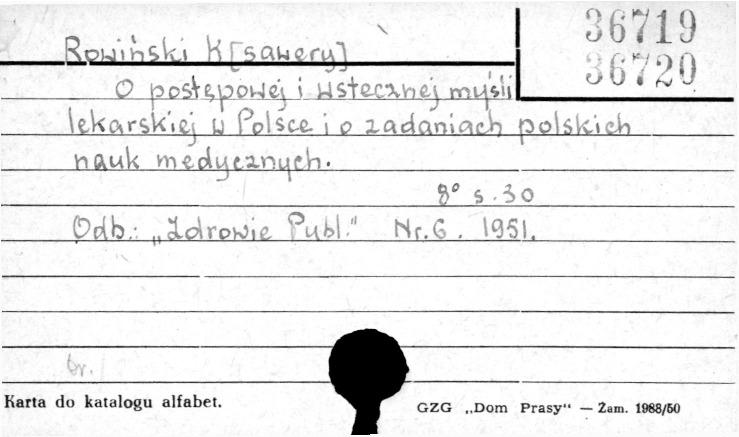 36719
36720
Rowiński K[sawery]
O postępowej i wstecznej myśli
lekarskiej w Polsce i o zadaniach polskich
nauk medycznych.
8° s. 30
Odb.: „Zdrowie Publ." Nr. 6. 1951.
br.
Karta do katalogu alfabet.
GZG „Dom Prasy" — Zam. 1988/50